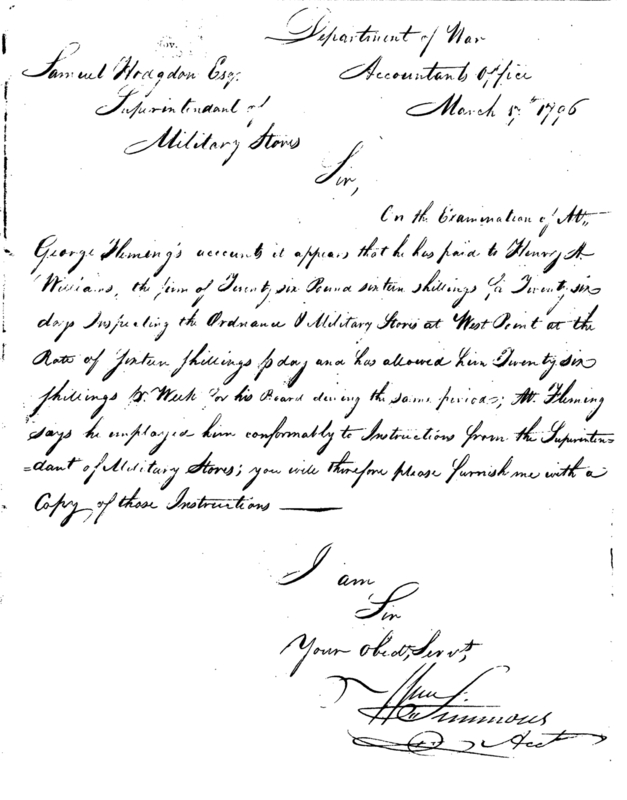 Department of War
Samuel Hodgdon Esq.
Accountants Office
Superintendant of
March 5th 1796
Military Stores
Sir,
On the Examination of Mr.
George Fleming's accounts it appears that he has paid to Henry A.
Williams, the sum of Twenty six Pound sixteen shillings for Twenty six
days Inspecting the Ordnance & Military Stores at West Point at the
Rate of sixteen shillings p day and has allowed him Twenty six
shillings Pr. Week for his Board during the same period; Mr. Fleming
says he employed him conformably to Instructions from the Superinten=
=dant of Military Stores; you will therefore please furnish me with a
Copy of those Instructions
I am
Sir
Your Obedt, Servt,
Wm
Simmons
Acct